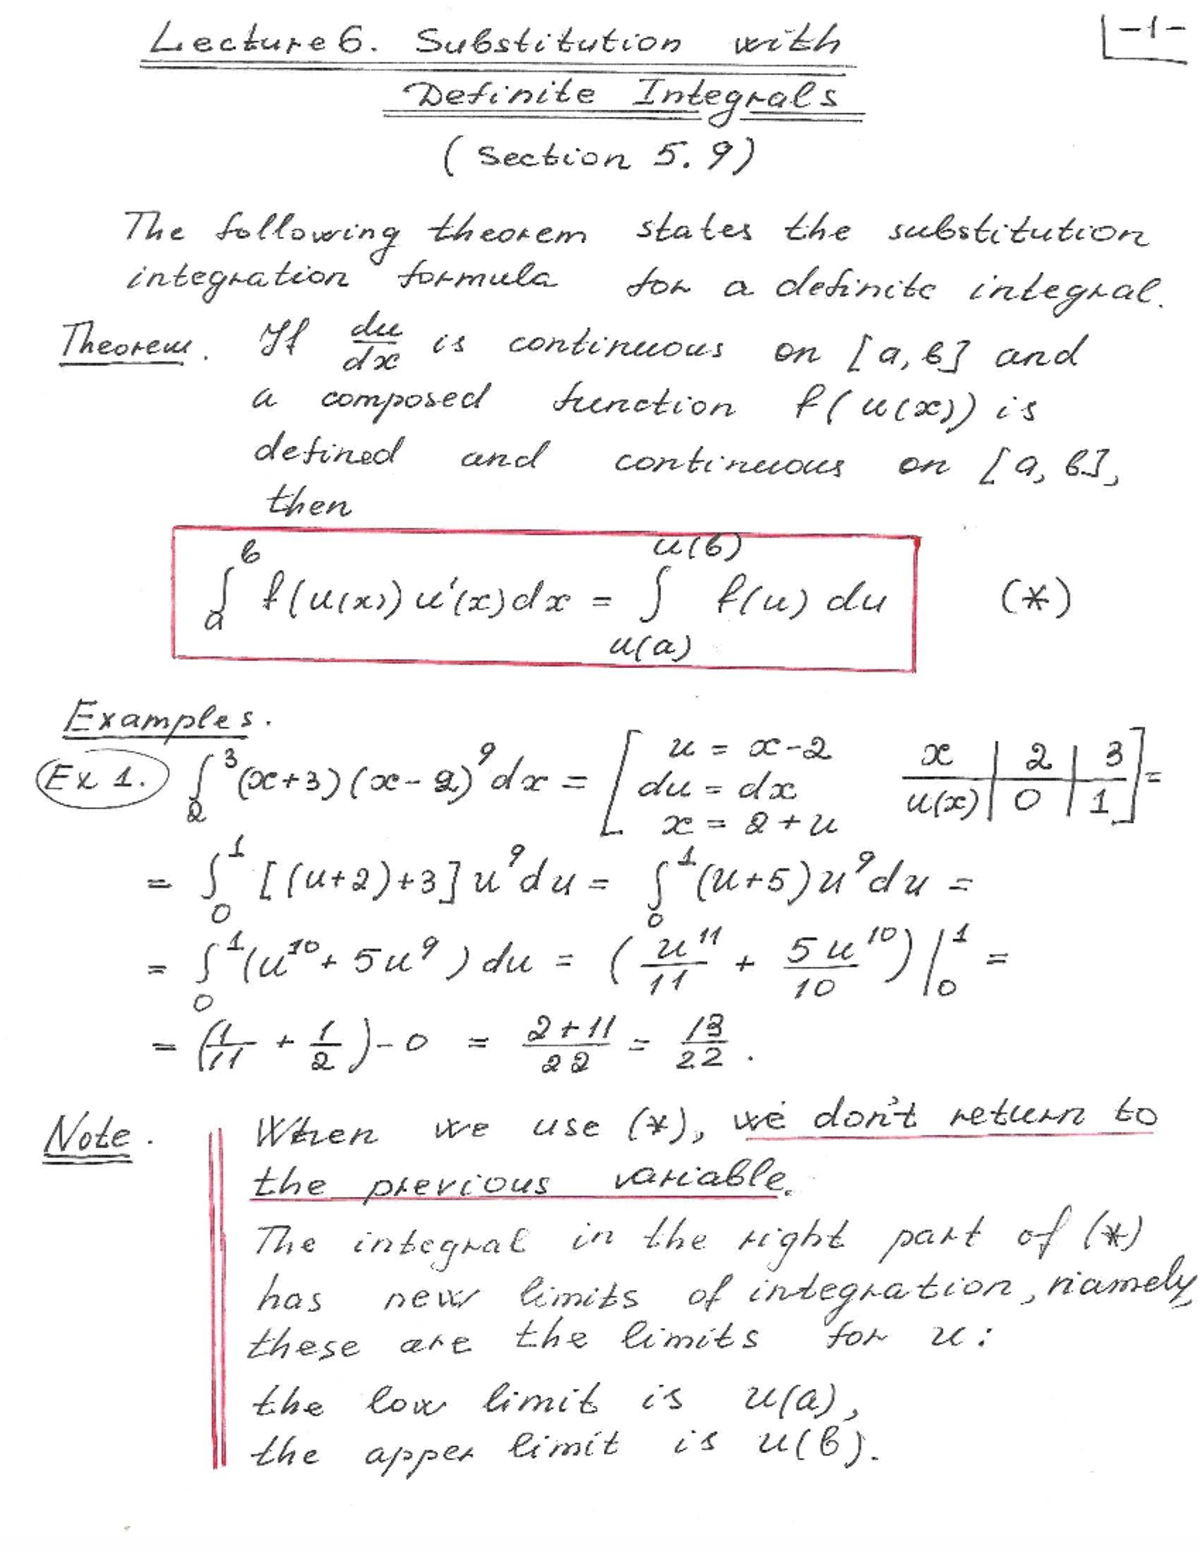 Lecture 6. Substitution with
|-1-
Definite Integrals
(Section 5.9)
The following theorem states the substitution
integration formula for a definite integral.
Theorem. If du/dx is continuous on [a, b] and
a composed function f(u(x)) is
defined and continuous on [a, b],
then
∫_a^b f(u(x)) u'(x)dx = ∫_{u(a)}^{u(b)} f(u) du (*)
Examples.
Ex 1. ∫_2^3 (x+3)(x-2)^9 dx = [ u = x-2 du = dx x = 2+u x | 2 | 3 u(x) | 0 | 1 ] =
= ∫_0^1 [(u+2)+3] u^9 du = ∫_0^1 (u+5) u^9 du =
= ∫_0^1 (u^10 + 5u^9) du = (u^11/11 + 5u^10/10)|_0^1 =
= (1/11 + 1/2) - 0 = 2+11/22 = 13/22.
Note. When we use (*), we don't return to
the previous variable.
The integral in the right part of (*)
has new limits of integration, namely,
these are the limits for u:
the low limit is u(a),
the apper limit is u(b).